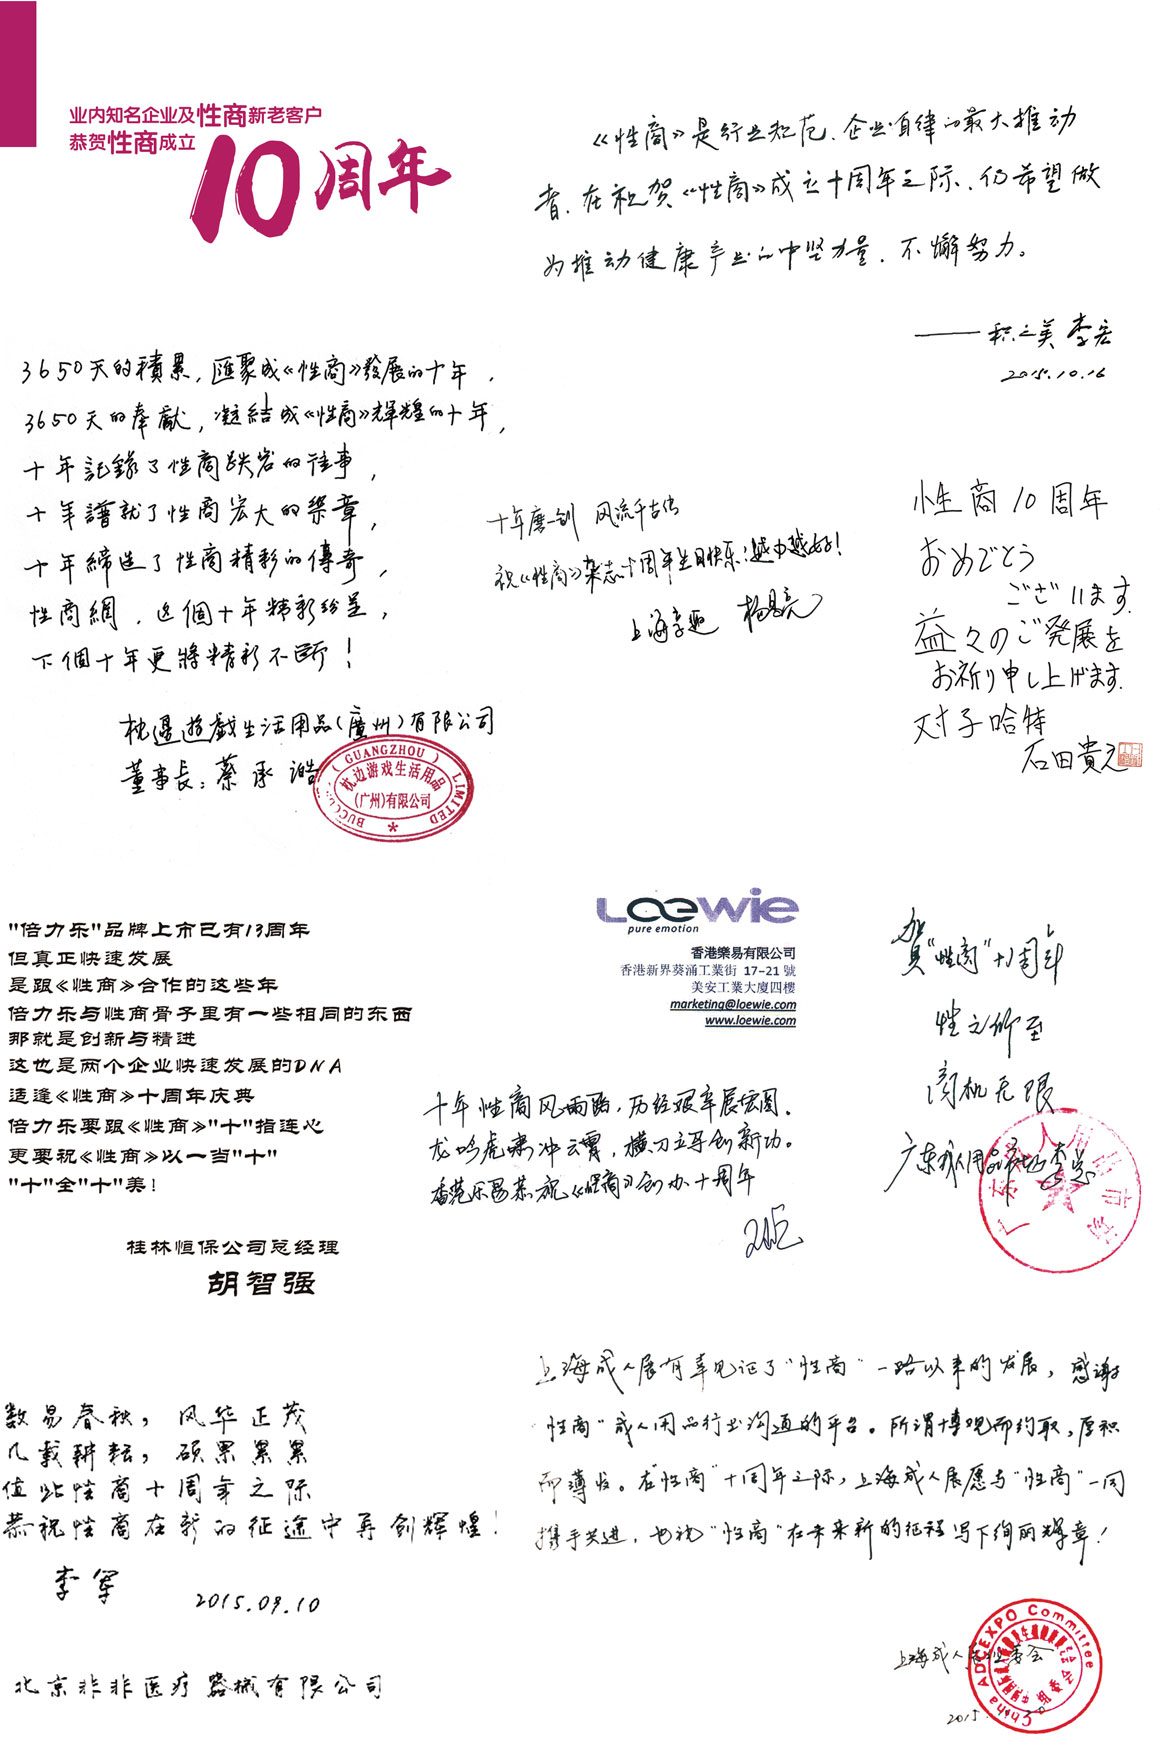 业内知名企业及性商新老客户
恭贺性商成立
10周年
《性商》是行业规范、企业自律的最大推动
者、在祝贺《性商》成立十周年之际、仍希望做
为推动健康产业的中坚力量、不懈努力。
——积之美 李宏
2015.10.16
3650天的積累，匯聚成《性商》發展的十年，
3650天的奉獻，凝結成《性商》輝煌的十年，
十年記錄了性商跌宕的往事，
十年譜就了性商宏大的樂章，
十年締造了性商精彩的傳奇，
性商網，这個十年精彩纷呈，
下個十年更將精彩不斷！
枕邊遊戲生活用品（廣州）有限公司
董事長：蔡承澔
(GUANGZHOU) LIMITED
枕边游戏生活用品
(广州)有限公司
十年磨一剑 风流千古传
祝《性商》杂志十周年生日快乐！越办越好！
上海
性商10周年
おめでとう
ございます.
益々のご発展を
お祈り申し上げます.
对子哈特
石田貴之
"倍力乐"品牌上市已有13周年
但真正快速发展
是跟《性商》合作的这些年
倍力乐与性商骨子里有一些相同的东西
那就是创新与精进
这也是两个企业快速发展的DNA
适逢《性商》十周年庆典
倍力乐要跟《性商》"十"指连心
更要祝《性商》以一当"十"
"十"全"十"美！
桂林恒保公司总经理
胡智强
Loewie
pure emotion
香港樂易有限公司
香港新界葵涌工業街 17-21 號
美安工業大廈四樓
marketing@loewie.com
www.loewie.com
十年性商风雨路，历经艰辛展宏图。
龙吟虎啸冲云霄，横刀立马创新功。
香港乐易恭祝《性商》创办十周年
贺"性商"十周年
性之所至
商机无限
广东成人用品市场
数易春秋，风华正茂
几载耕耘，硕果累累
值此性商十周年之际
恭祝性商在新的征途中再创辉煌！
李军
2015.09.10
北京非非医疗器械有限公司
上海成人展有幸见证了"性商"一路以来的发展，感谢
"性商"成人用品行业沟通的平台。所谓博观而约取，厚积
而薄发。在"性商"十周年之际，上海成人展愿与"性商"一同
携手共进，也祝"性商"在未来新的征程写下绚丽辉章！
上海成人展组委会
China ADC EXPO Committee
2015